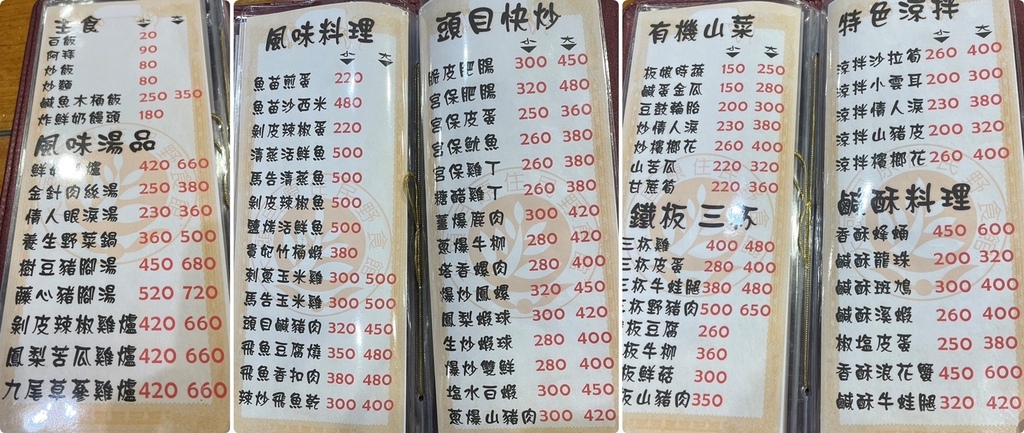 主食
小 大
白飯 20
阿拜 90
炒飯 80
炒麵 80
鹹魚木桶飯 250 350
炸鮮奶饅頭 180
風味湯品
420 660
金針肉絲湯 250 380
情人眼淚湯 230 360
養生野菜鍋 360 500
樹豆豬腳湯 450 680
藤心豬腳湯 520 720
剝皮辣椒雞爐 420 660
鳳梨苦瓜雞爐 420 660
九尾草蔘雞爐 420 660
風味料理
小 大
魚苗煎蛋 220
魚苗沙西米 480
剝皮辣椒蛋 220
清蒸活鮮魚 500
馬告清蒸魚 500
剝皮辣椒魚 500
鹽烤活鮮魚 500
貴妃竹桶蝦 380
刺蔥玉米雞 300 500
馬告玉米雞 300 500
頭目鹹豬肉 320 450
飛魚豆腐燒 350 480
飛魚香扣肉 380 480
辣炒飛魚乾 300 400
頭目快炒
小 大
脆皮肥腸 300 450
宮保肥腸 320 480
宮保皮蛋 250 360
宮保魷魚 260 380
宮保雞丁 260 380
糖醋雞丁 260 380
薑爆鹿肉 300 420
蔥爆牛柳 280 420
塔香螺肉 280 400
爆炒鳳螺 320 450
鳳梨蝦球 300 420
生炒蝦球 280 400
爆炒雙鮮 280 400
塩水白蝦 300 450
蔥爆山豬肉 300 420
有機山菜
小 大
板娘時蔬 150 250
鹹蛋金瓜 150 280
豆鼓輪胎 200 300
炒情人淚 230 380
炒檳榔花 260 400
山苦瓜 220 320
甘蔗筍 220 360
鐵板三杯
三杯雞 400 480
三杯皮蛋 280 400
三杯牛蛙腿 380 480
三杯野豬肉 500 650
板豆腐 260
板牛柳 360
板鮮菇 300
板山豬肉 350
特色涼拌
小 大
涼拌沙拉筍 260 400
涼拌小雲耳 200 300
涼拌情人淚 230 380
涼拌山豬皮 200 320
涼拌檳榔花 260 400
鹹酥料理
香酥蜂蛹 450 600
鹹酥龍珠 200 320
鹹酥斑鳩 300 400
鹹酥溪蝦 260 400
椒塩皮蛋 250 380
香酥浪花蟹 450 600
鹹酥牛蛙腿 320 420